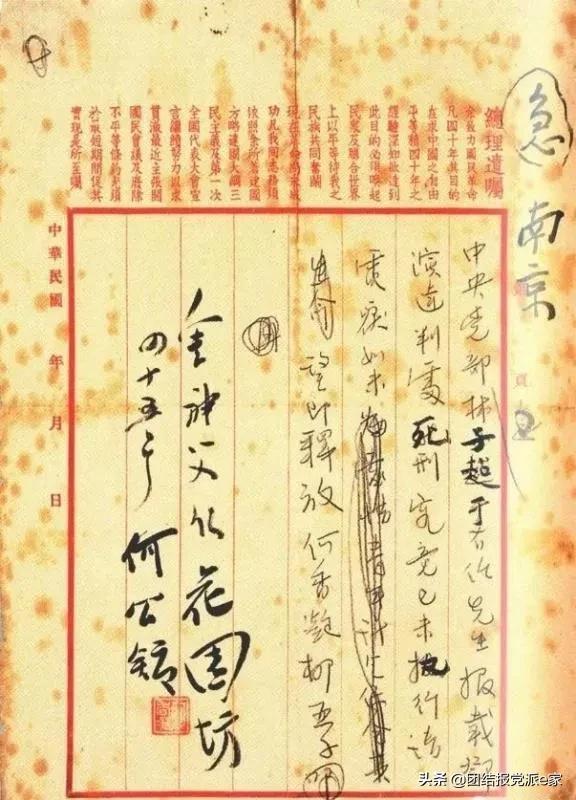 急 南京
總理遺囑
余致力國民革命
凡四十年其目的
在求中國之自由
平等積四十年之
經驗深知欲達到
此目的必須喚起
民眾及聯合世界
上以平等待我之
民族共同奮鬥
現在革命尚未成
功凡我同志務須
依照余所著建國
方略建國大綱三
民主義及第一次
全國代表大會宣
言繼續努力以求
貫澈最近主張開
國民會議及廢除
不平等條約尤須
於最短期間促其
實現是所至囑
頁
中央党部林子超于右任先生报载邓
演達判處死刑究竟已未执行請
電癈如未
望即釋放何香凝柳亚子叩
金神父路花園坊
四十五号何公館
中華民國 年 月 日
头条 @团结报党派e家